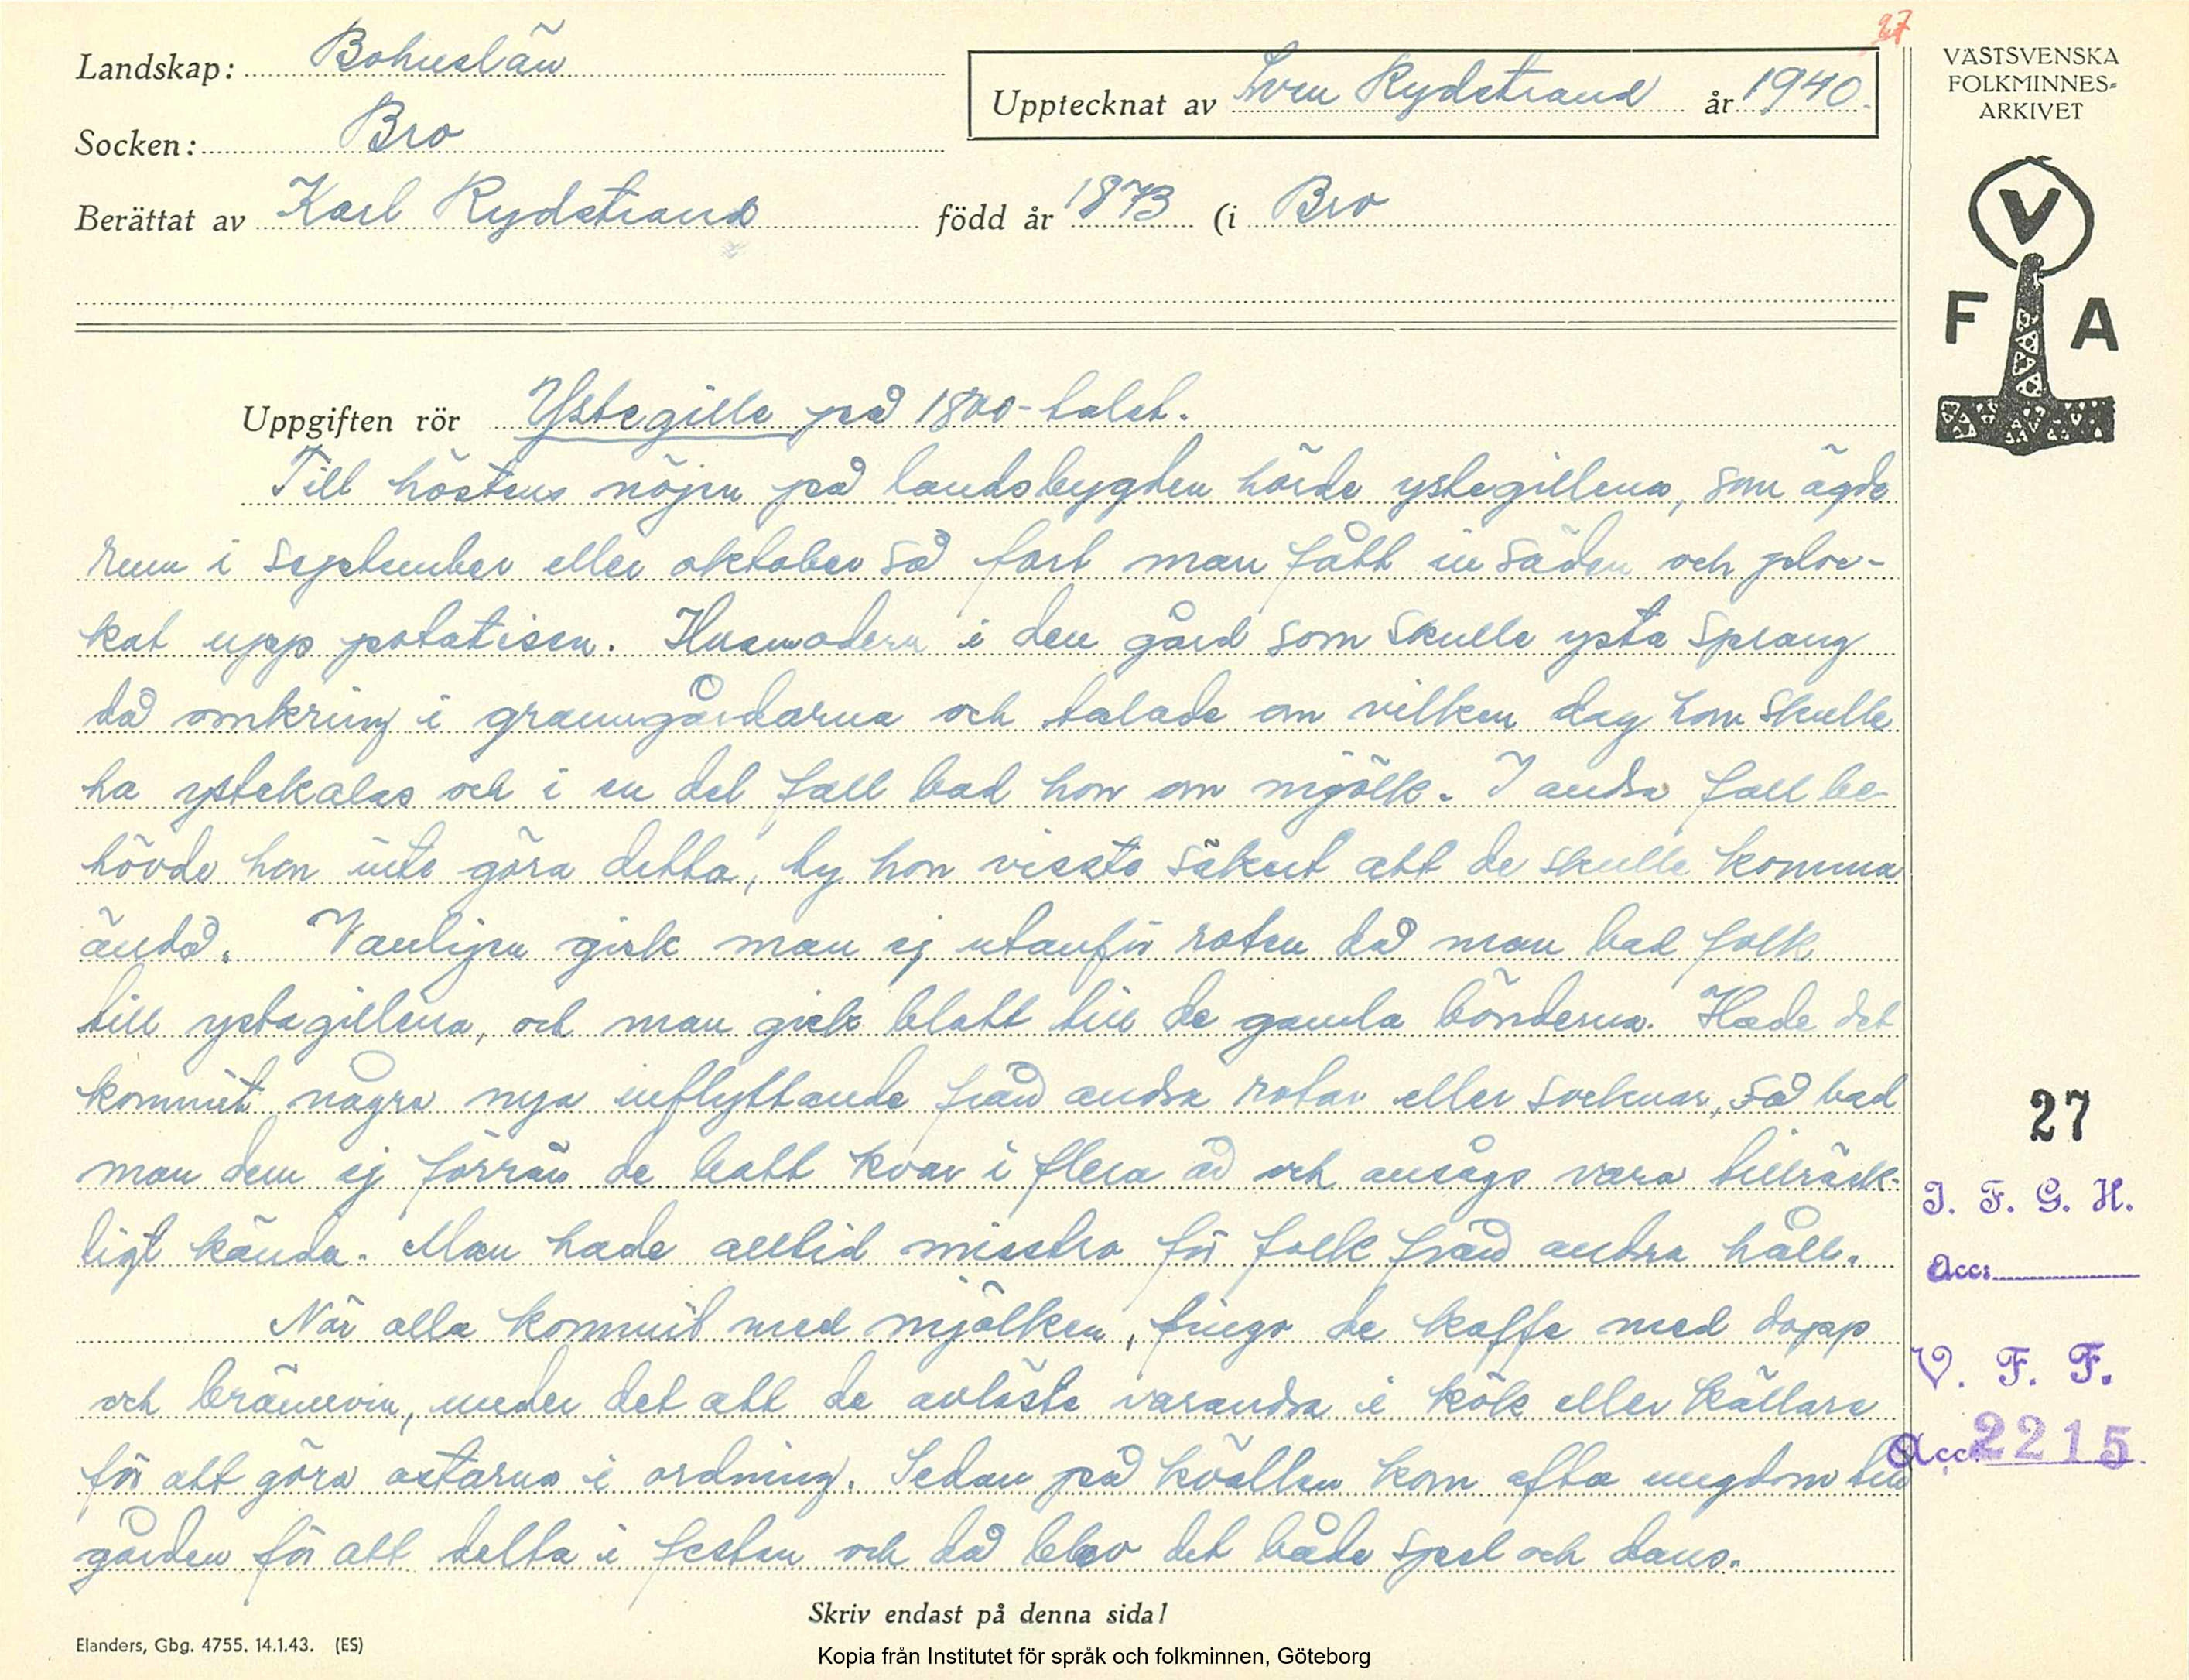 27
Landskap: Bohuslän
Upptecknat av Sven Rydstrand år 1940.
Socken: Bro
Berättat av Karl Rydstrand född år 1873 (i Bro
VÄSTSVENSKA
FOLKMINNES-
ARKIVET
V
F A
Uppgiften rör Ystegille på 1800-talet.
Till höstens nöjen på landsbygden hörde ystegillena, som ägde
rum i September eller oktober så fort man fått in säden och ploc-
kat upp potatisen. Husmodern i den gård som skulle ysta sprang
då omkring i granngårdarna och talade om vilken dag hon skulle
ha ystekalas och i en del fall bad hon om mjölk. I andra fall be-
hövde hon inte göra detta, ty hon visste säkert att de skulle komma
ändå. Vanligen gick man ej utanför roten då man bad folk
till ystegillena, och man gick blott till de gamla bönderna. Hade det
kommit några nya inflyttande från andra rotar eller socknar, så bad
man dem ej förrän de bott kvar i flera år och ansågs vara tillräck-
ligt kända. Man hade alltid misstro för folk från andra håll.
När alla kommit med mjölken, fingo de kaffe med dopp
och brännvin, under det att de avlöste varandra i kök eller källare
för att göra ostarna i ordning. Sedan på kvällen kom ofta ungdom till
gården för att delta i festen och då blev det både spel och dans.
27
I. F. G. H.
Acc:
V. F. F.
Acc: 2215
Skriv endast på denna sida!
Elanders, Gbg. 4755. 14.1.43. (ES)
Kopia från Institutet för språk och folkminnen, Göteborg